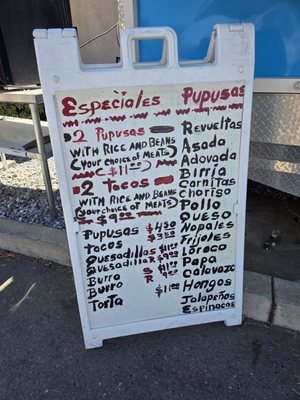 Especiales
2 Pupusas
WITH RICE AND BEANS
(your choice of MEATS)
$11.00
2 TACOS
WITH RICE AND BEANS
(your choice of MEATS)
$9.00
Pupusas $4.50
Tacos $3.50
Quesadillas
Quesadilla R
Burro S
Burro R
Torta $11.00
Pupusas
Revueltas
Asada
Adovada
Birria
Carnitas
Choriso
Pollo
Queso
Nopales
Frijoles
Loroco
Papa
Calavaza
Hongos
Jalapeños
Espinacas